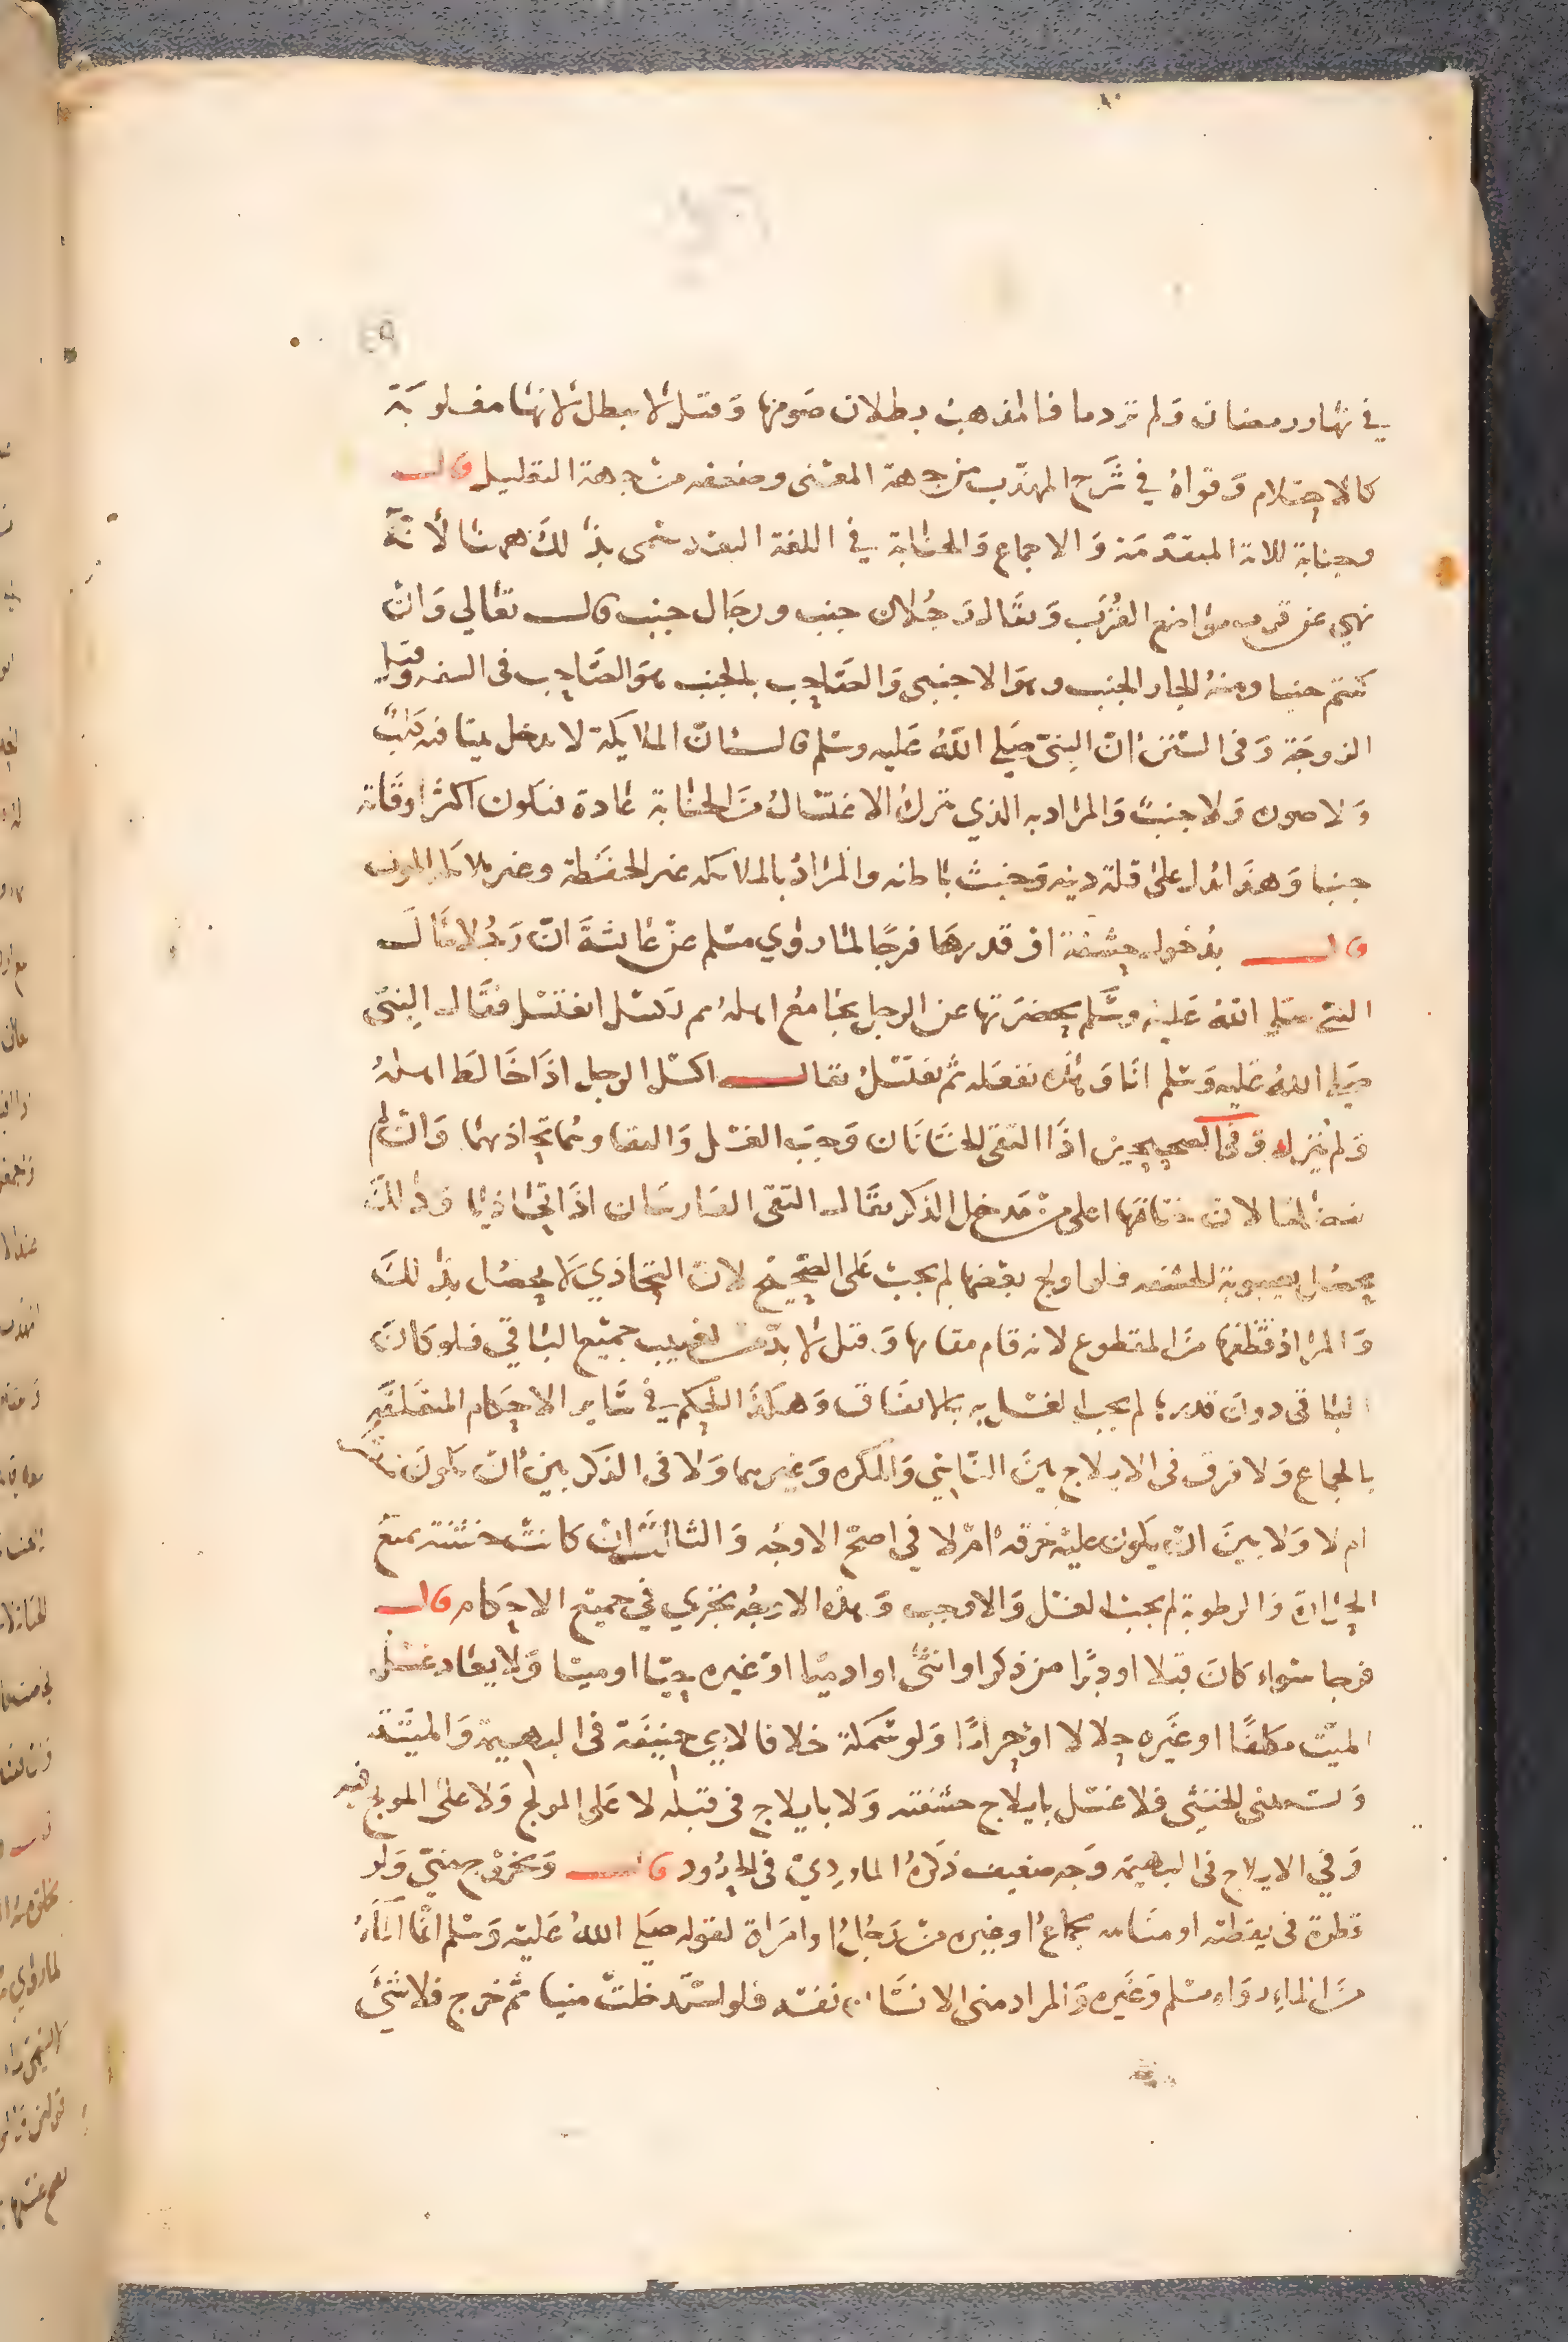 في نهار رمضان ولم تر دما فالمذهب بطلان صومها وقيل لا يبطل لانها مغلوبة
كالاحتلام وقواه في شرح المهذب من جهة المعنى وضعفه من جهة التعليل قال
وجنابة للاية المتقدمة والاجماع والجنابة في اللغة البعد سمى بذلك همنا لأنه
نهي عن قرب مواضع القرب ويقال رجلان جنب ورجال جنب قال تعالي وان
كنتم جنبا ومنه الجار الجنب وهو الاجنبي والصاحب بالجنب هو الصاحب في السفر وقيل
الزوجة وفي السنن ان النبي صلي الله عليه وسلم قال ان الملايكة لا تدخل بيتا فيه كلب
ولا صورة ولا جنب والمراد به الذي ترك الاغتسال من الجنابة عادة فيكون اكثر اوقاته
جنبا وهذا يدل على قلة دينه وخبث باطنه والمراد بالملايكة غير الحفظة وغير ملايكة الموت
قال بدخول حشفة او قدرها فرجا لما روي مسلم عن عايشة ان رجلا سال
النبي صلي الله عليه وسلم بحضرتها عن الرجل يجامع اهله ثم يكسل ايغتسل فقال النبي
صلي الله عليه وسلم انا وهذه نفعله ثم نغتسل يقال اكسل الرجل اذا خالط اهله
ولم ينزل وفي الصحيحين اذا التقى الختانان وجب الغسل والتقاوهما تحاذيهما وان لم
يتضاما لان ختانها اعلى من مدخل الذكر يقال التقى الفارسان اذا تحاذيا وذلك
يحصل بغيبوبة الحشفة فلو اولج بعضها لم يجب على الصحيح لان التحاذي لا يحصل بذلك
والمراد قطعها من المقطوع لانه قام مقامها وقيل لا بد من تغييب جميع الباقي فلو كان
الباقي دون قدرها لم يجب الغسل به بالاتفاق وهكذا الحكم في ساير الاحكام المتعلقة
بالجماع ولا فرق في الايلاج بين الناسي والمكره وغيرهما ولا في الذكر بين ان يكون
ام لا ولا بين ان يكون عليه خرقة ام لا في اصح الاوجه والثالث ان كانت خشنة تمنع
الحرارة والرطوبة لم يجب الغسل والا وجب وهذه الاوجه تجري في جميع الاحكام قال
فرجا سواء كان قبلا او دبرا من ذكر او انثى او ادميا او غيره حيا او ميتا ولا يعاد غسل
الميت مكلفا او غيره حلالا او حراما ولو سمكة خلافا لابي حنيفة في البهيمة والميتة
ويستثنى الخنثى فلا غسل بايلاج حشفته ولا بايلاج في قبله لا على المولج ولا على المولج فيه
وفي الايلاج في البهيمة وجه ضعيف ذكره الماوردي في الحدود قال وبخروج مني ولو
قطرة في يقظته او منامه بجماع او غيره من رجل او امراة لقوله صلي الله عليه وسلم انما الماء
من الماء رواه مسلم وغيره والمراد مني الانسان نفسه فلو استدخلت منيا ثم خرج فلا شيء